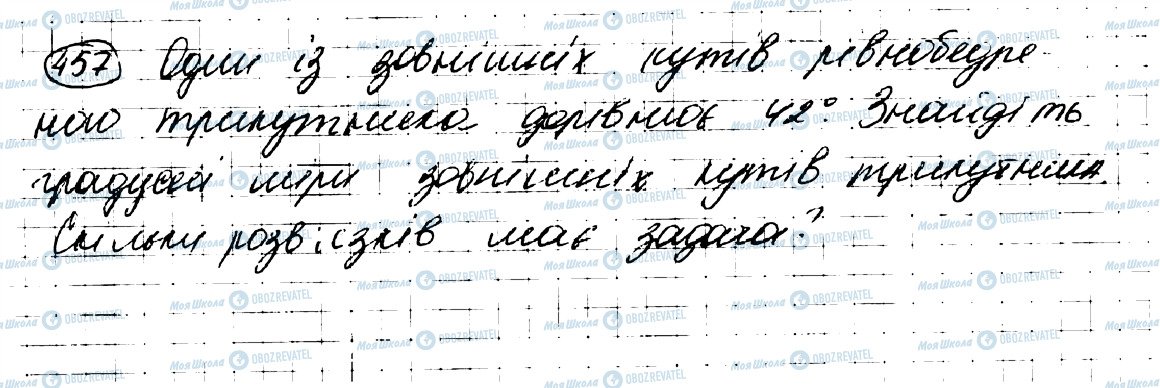 457 Один із зовнішніх кутів рівнобедре
ного трикутника дорівнює 42°. Знайдіть
градусні міри зовнішніх кутів трикутника.
Скільки розв'язків має задача?